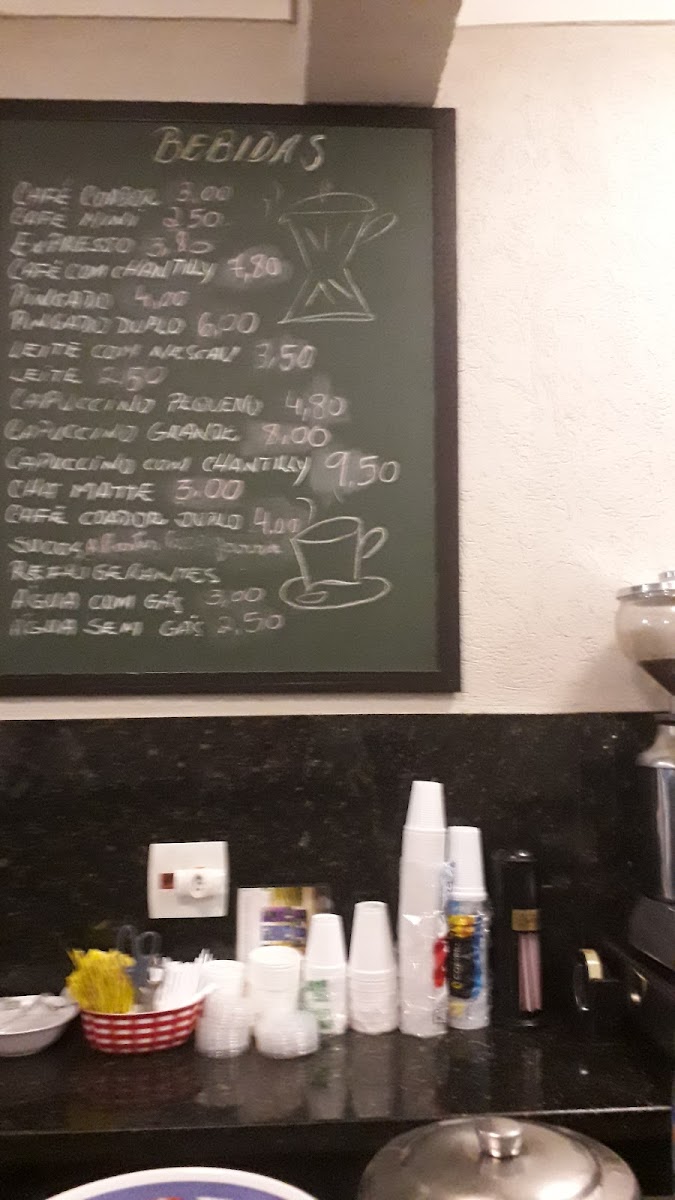 BEBIDAS
CAFÉ COADOR 3.00
CAFÉ MINI 2,50
EXPRESSO 3,80
CAFÉ COM CHANTILLY 7,80
PINGADO 4,00
PINGADO DUPLO 6,00
LEITE COM NESCAU 3,50
LEITE 2,50
CAPUCCINO PEQUENO 4,80
CAPUCCINO GRANDE 8,00
CAPUCCINO COM CHANTILLY 9,50
CHÁ MATTE
CAFÉ COADOR DUPLO 4.00
SUCOS
REFRIGERANTES
ÁGUA COM GÁS 3,00
ÁGUA SEM GÁS 2,50